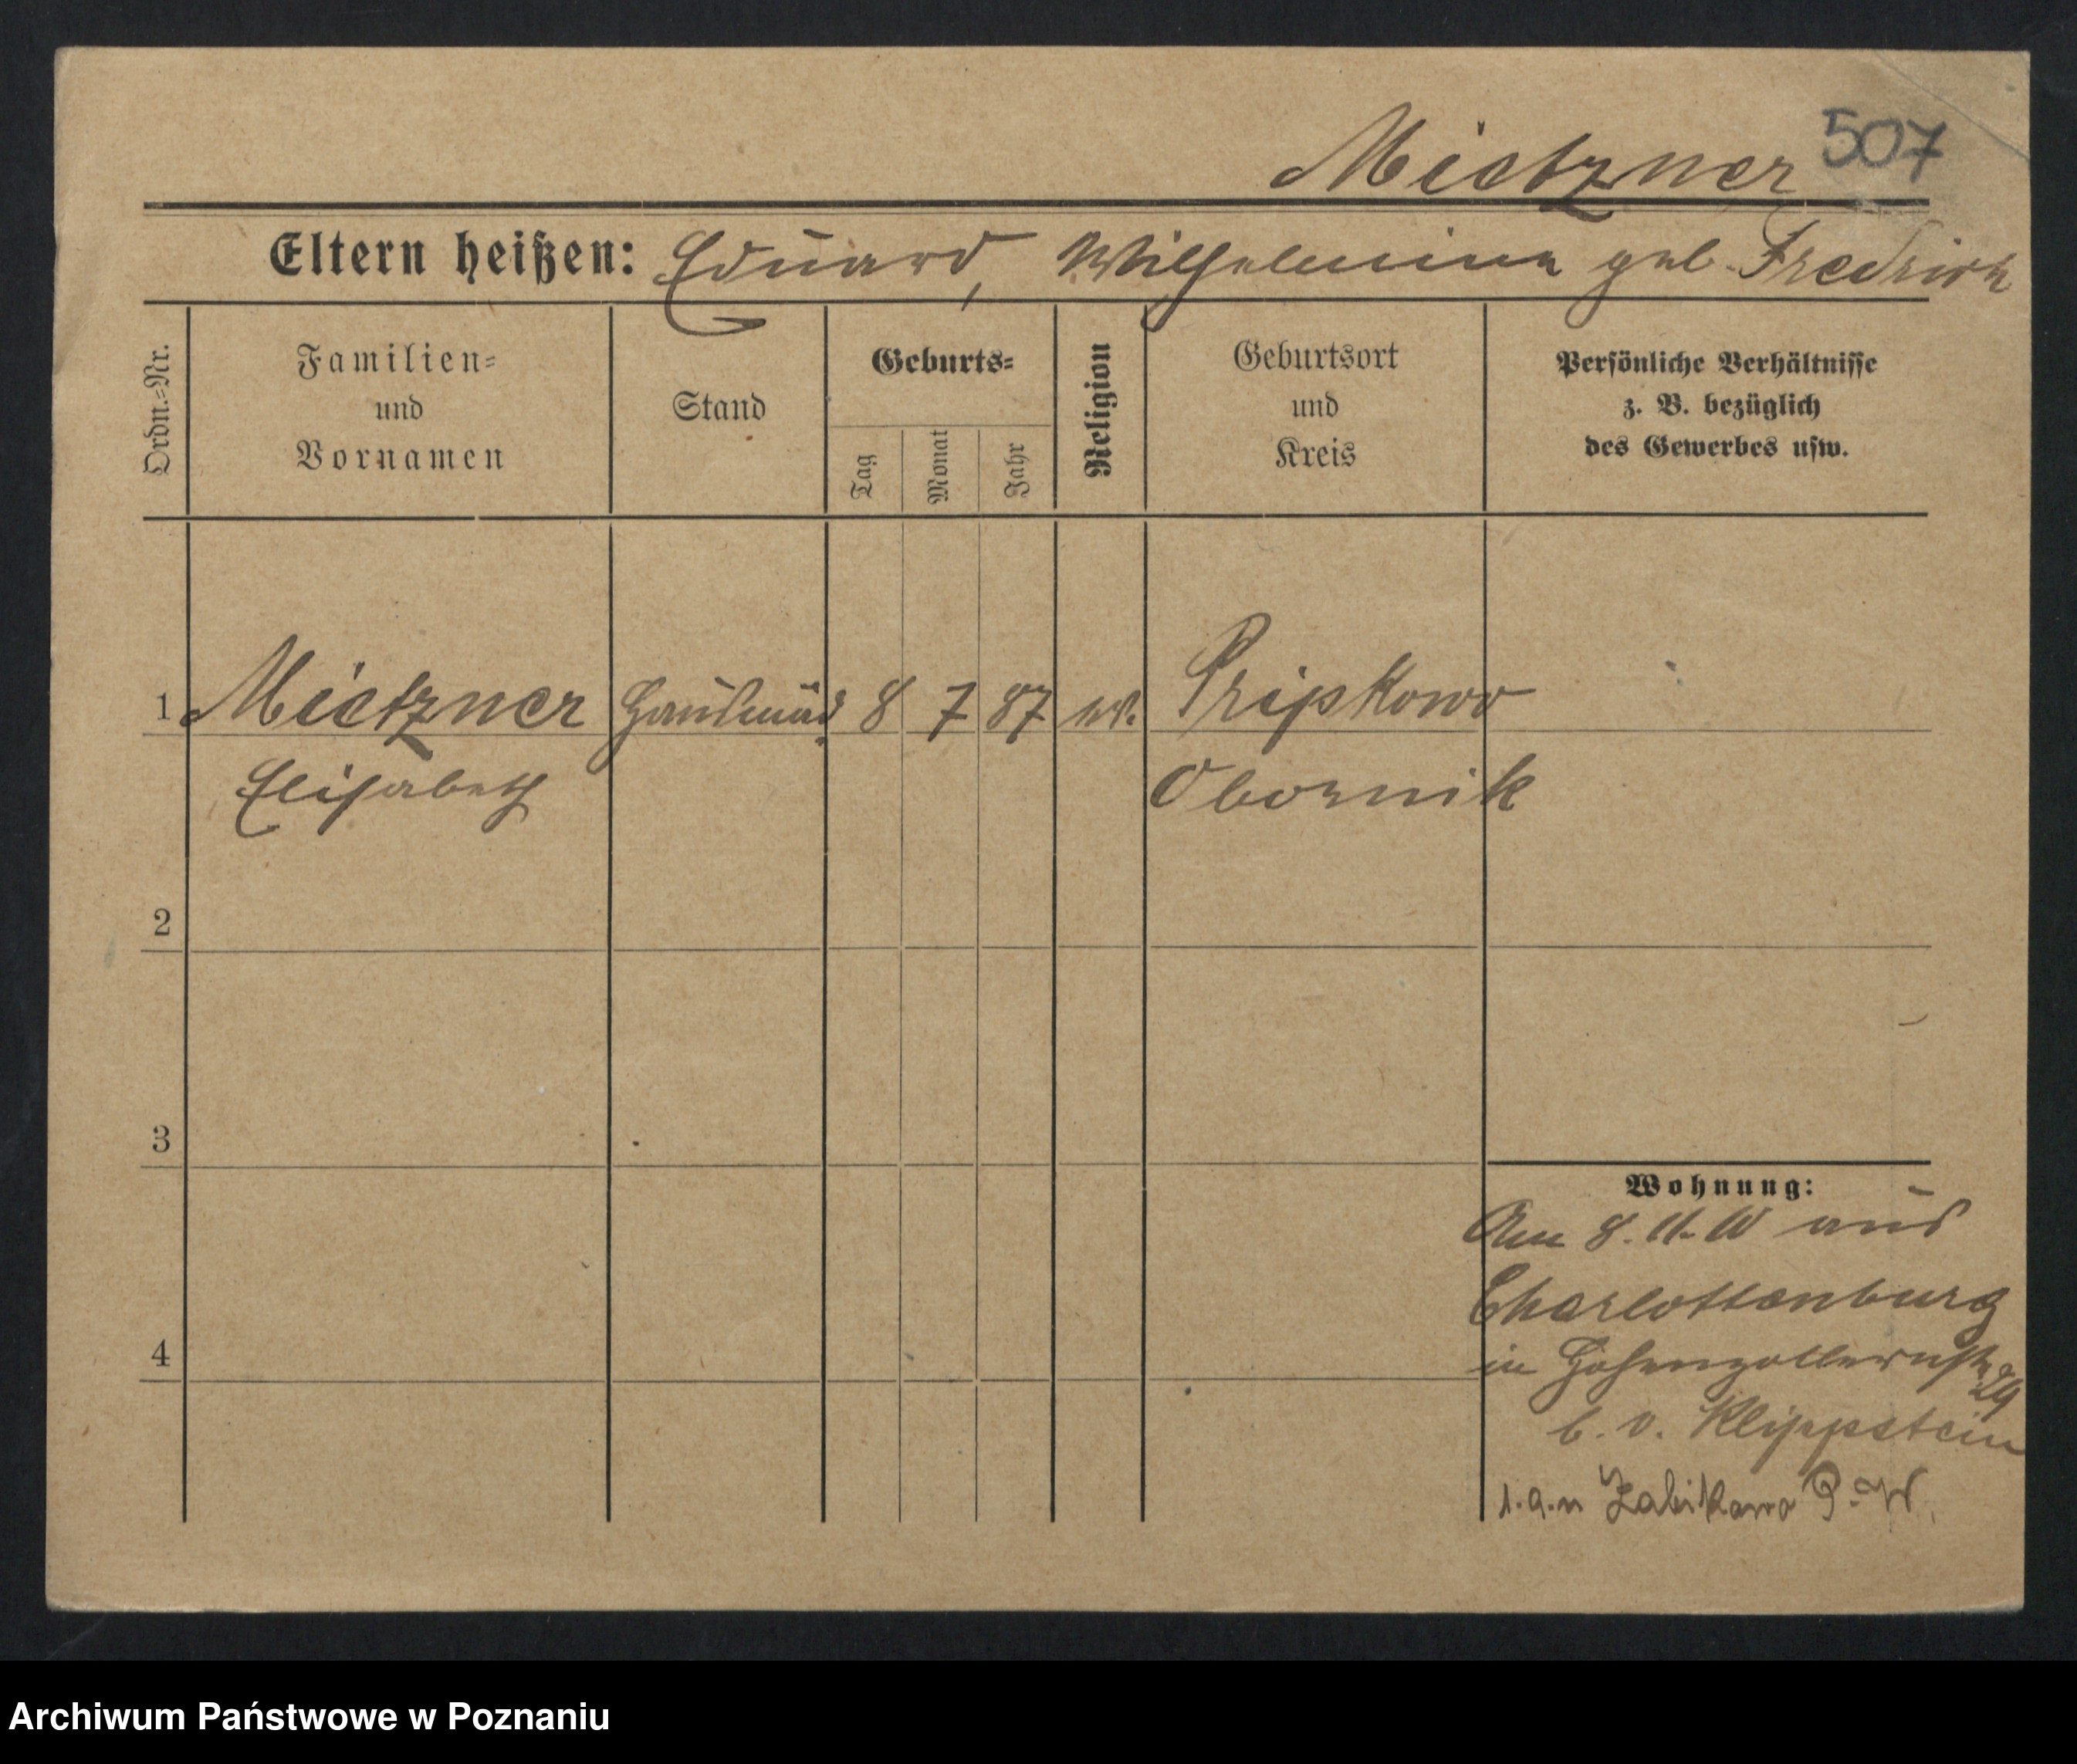 Mietzner 507
Eltern heißen: Eduard, Wilhelmine geb. Fredrich
Ordn.=Nr.
Familien=
und
Vornamen
Stand
Geburts=
Tag
Monat
Jahr
Religion
Geburtsort
und
Kreis
Persönliche Verhältnisse
z. B. bezüglich
des Gewerbes usw.
1 Mietzner Hausmäd. 8 7 87 ev. Pripkowo
Elisabeth Obornik
2
3
4
Wohnung:
Am 8. 11. 10 aus
Charlottenburg
in Hohenzollernstr. 29
b. v. Klippstein
1.9.11 Zabikowo P.-W.
Archiwum Państwowe w Poznaniu